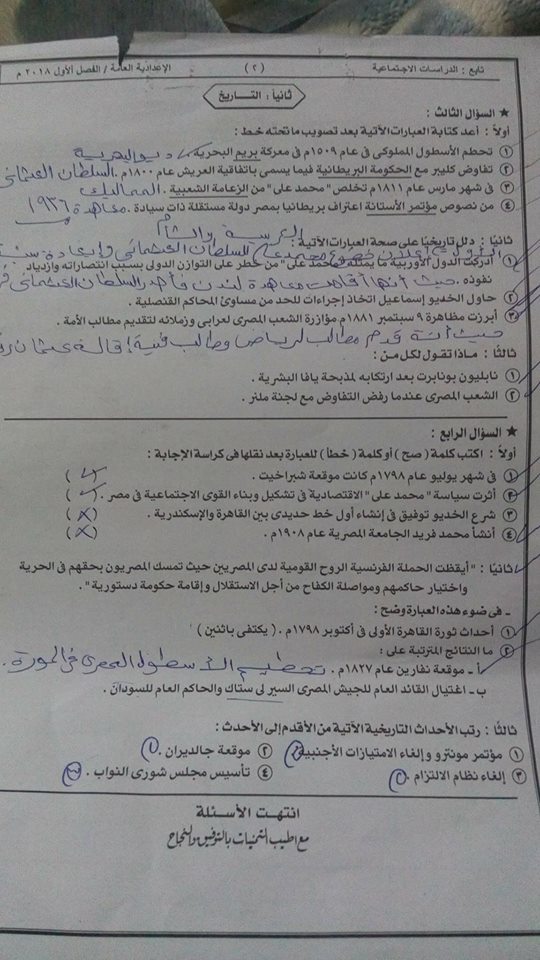 تابع : الدراسات الاجتماعية (٢) الإعدادية العامة / الفصل الأول ٢٠١٨ م
ثانياً : التاريخ
★ السؤال الثالث :
أولاً : أعد كتابة العبارات الآتية بعد تصويب ما تحته خط :
١ تحطم الأسطول المملوكى فى عام ١٥٠٩م فى معركة بريم البحرية . ديو البحرية
٢ تفاوض كليبر مع الحكومة البريطانية فيما يسمى باتفاقية العريش عام ١٨٠٠م . السلطان العثمانى
٣ فى شهر مارس عام ١٨١١م تخلص "محمد على" من الزعامة الشعبية . المماليك
٤ من نصوص مؤتمر الأستانة اعتراف بريطانيا بمصر دولة مستقلة ذات سيادة . معاهدة ١٩٣٦
ثانياً : دلل تاريخياً على صحة العبارات الآتية :
١ أدركت الدول الأوربية ما يمثله "محمد على" من خطر على التوازن الدولى بسبب انتصاراته وازدياد
نفوذه . حيث أنها أقامت معاهدة لندن
٢ حاول الخديو إسماعيل اتخاذ إجراءات للحد من مساوئ المحاكم القنصلية .
٣ أبرزت مظاهرة ٩ سبتمبر ١٨٨١م مؤازرة الشعب المصرى لعرابى وزملائه لتقديم مطالب الأمة .
حيث أنه قدم مطالب لرياض
ثالثاً : ماذا تقول لكل من :
١ نابليون بونابرت بعد ارتكابه لمذبحة يافا البشرية .
٢ الشعب المصرى عندما رفض التفاوض مع لجنة ملنر .
★ السؤال الرابع :
أولاً : اكتب كلمة (صح) أو كلمة (خطأ) للعبارة بعد نقلها فى كراسة الإجابة :
١ فى شهر يوليو عام ١٧٩٨م كانت موقعة شبراخيت . (✓)
٢ أثرت سياسة "محمد على" الاقتصادية فى تشكيل وبناء القوى الاجتماعية فى مصر . (✓)
٣ شرع الخديو توفيق فى إنشاء أول خط حديدى بين القاهرة والإسكندرية . (×)
٤ أنشأ محمد فريد الجامعة المصرية عام ١٩٠٨م . (×)
ثانياً : "أيقظت الحملة الفرنسية الروح القومية لدى المصريين حيث تمسك المصريون بحقهم فى الحرية
واختيار حاكمهم ومواصلة الكفاح من أجل الاستقلال وإقامة حكومة دستورية" .
ـ فى ضوء هذه العبارة وضح :
١ أحداث ثورة القاهرة الأولى فى أكتوبر ١٧٩٨م . (يكتفى باثنين)
٢ ما النتائج المترتبة على :
أ ـ موقعة نفارين عام ١٨٢٧م . تحطيم الأسطول المصرى فى المورة .
ب ـ اغتيال القائد العام للجيش المصرى السير لى ستاك والحاكم العام للسودان .
ثالثاً : رتب الأحداث التاريخية الآتية من الأقدم إلى الأحدث :
١ مؤتمر مونترو وإلغاء الامتيازات الأجنبية ٢ موقعة جالديران .
٣ إلغاء نظام الالتزام . ٤ تأسيس مجلس شورى النواب .
انتهت الأسئلة
مع أطيب التمنيات بالتوفيق والنجاح